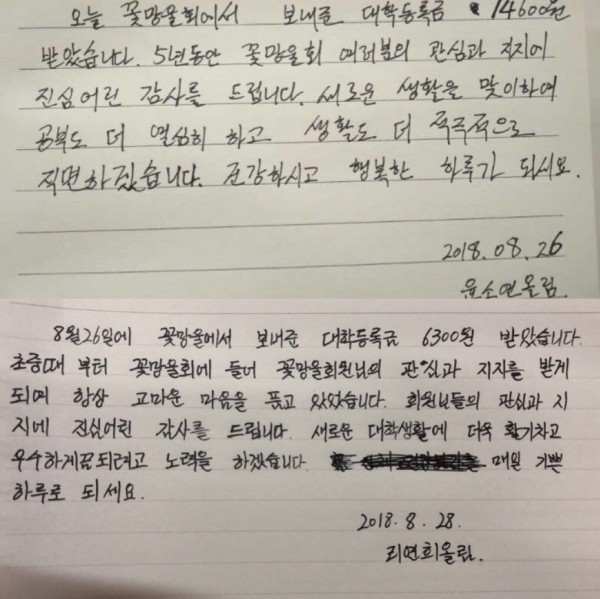 오늘 꽃망울회에서 보내준 대학등록금 14600원
받았습니다. 5년동안 꽃망울회 여러분의 관심과 지지에
진심어린 감사를 드립니다. 새로운 생활을 맞이하여
공부도 더 열심히 하고 생활도 더 적극적으로
직면하겠습니다. 건강하시고 행복한 하루가 되세요.
2018.08.26
윤소연올림.
8월26일에 꽃망울에서 보내준 대학등록금 6300원 받았습니다.
초중때 부터 꽃망울회에 들어 꽃망울회원님의 관심과 지지를 받게
되여 항상 고마운 마음을 품고 있었습니다. 회원님들의 관심과 지
지에 진심어린 감사를 드립니다. 새로운 대학생활에 더욱 활기차고
우수하게끔되려고 노력을 하겠습니다. 매일 기쁜
하루로 되세요.
2018.8.28.
리연희올림.